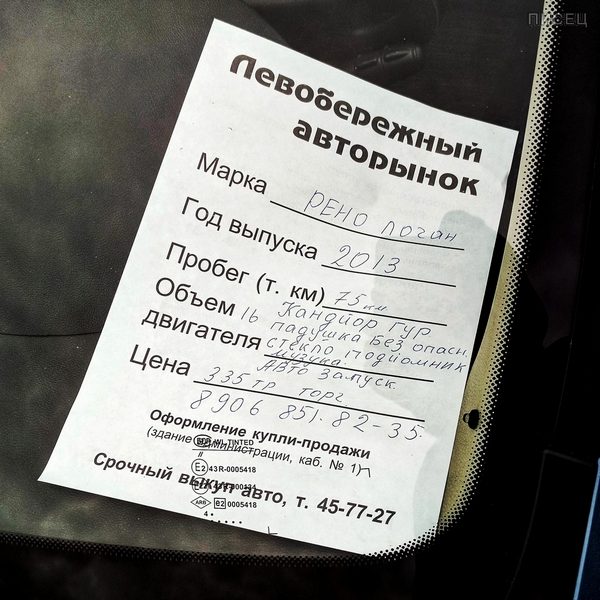 ПИСЕЦ
Левобережный
авторынок
Марка РЕНО Логан
Год выпуска 2013
Пробег (т. км) 75 км
Объем 16 Кандиор ГУР
двигателя падушка без опасн.
стекло подиомник
музыка
Авто запуск.
Цена 335 тр торг
8906 851. 82-35.
Оформление купли-продажи
(здание администрации, каб. № 1)
TINTED
//
E2 43R-0005418
ARB e2 0005418
Срочный выкуп авто, т. 45-77-27